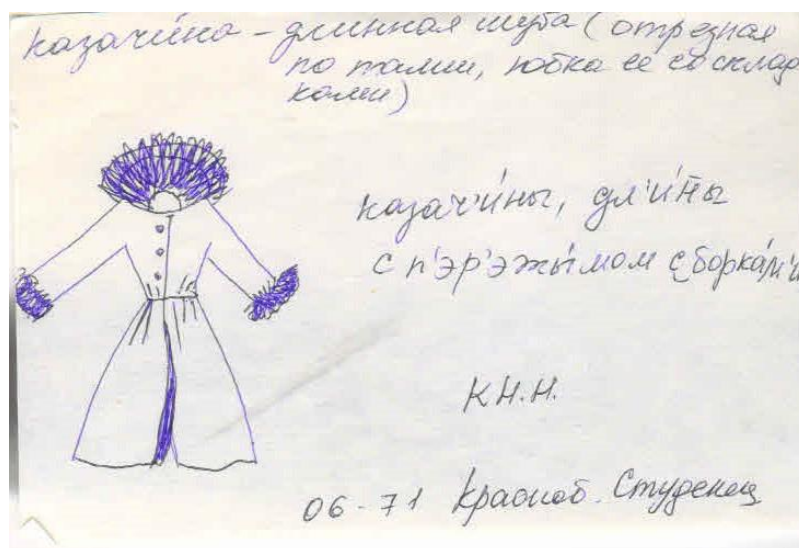 казачи́на - длинная шуба (отрезная
по талии, юбка ее со склад
ками)
казач'и́ны, дл'и́ны
с п'эр'эжы́мом с боркам'и
КН.Н.
06-71 Красноб. Студенец